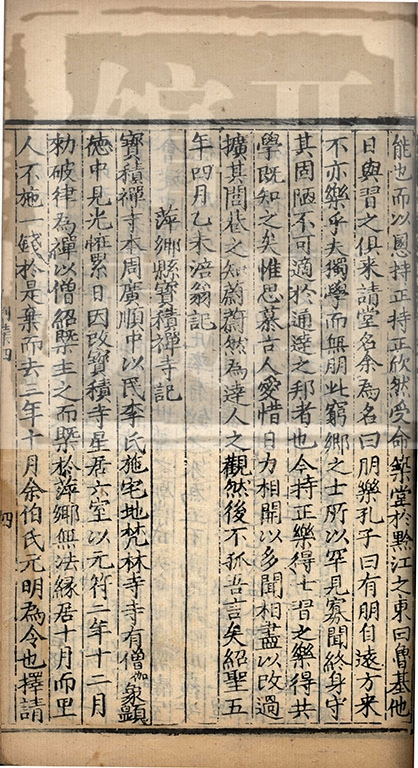 能也而以恩持正持正欣然受命築堂於黔江之東曰魯基他
日與習之俱來請堂名余為名曰朋樂孔子曰有朋自遠方來
不亦樂乎夫獨學而無朋此窮鄉之士所以罕見寡聞終身守
其固陋不可適於通達之邦者也今持正樂得七習之樂得共
學既知之矣惟思慕古人愛惜日力相開以多聞相盡以改過
擴其閭巷之知蔚蔚然為達人之觀然後不孤吾言矣紹聖五
年四月乙未涪翁記
萍鄉縣寶積禪寺記
寶積禪寺本周廣順中以民李氏施宅地梵林寺寺有僧伽象顯
德中見光怪累日因改寶積寺星居六室以元符二年十二月
勑破律為禪以僧紹槩主之而槩於萍鄉無法緣居十月而里
人不施一錢於是棄而去三年十月余伯氏元明為令也擇請
四
四